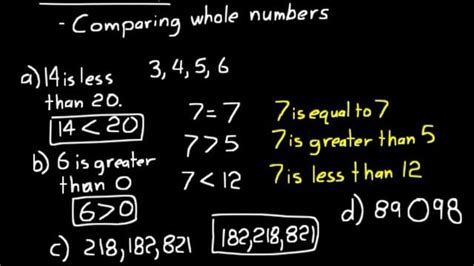 - Comparing whole numbers
a) 14 is less
than 20.
14 < 20
3, 4, 5, 6
7 = 7
7 is equal to 7
7 > 5
7 is greater than 5
7 < 12
7 is less than 12
b) 6 is greater
than 0
6 > 0
c) 218, 182, 821
182, 218, 821
d) 89 O 98